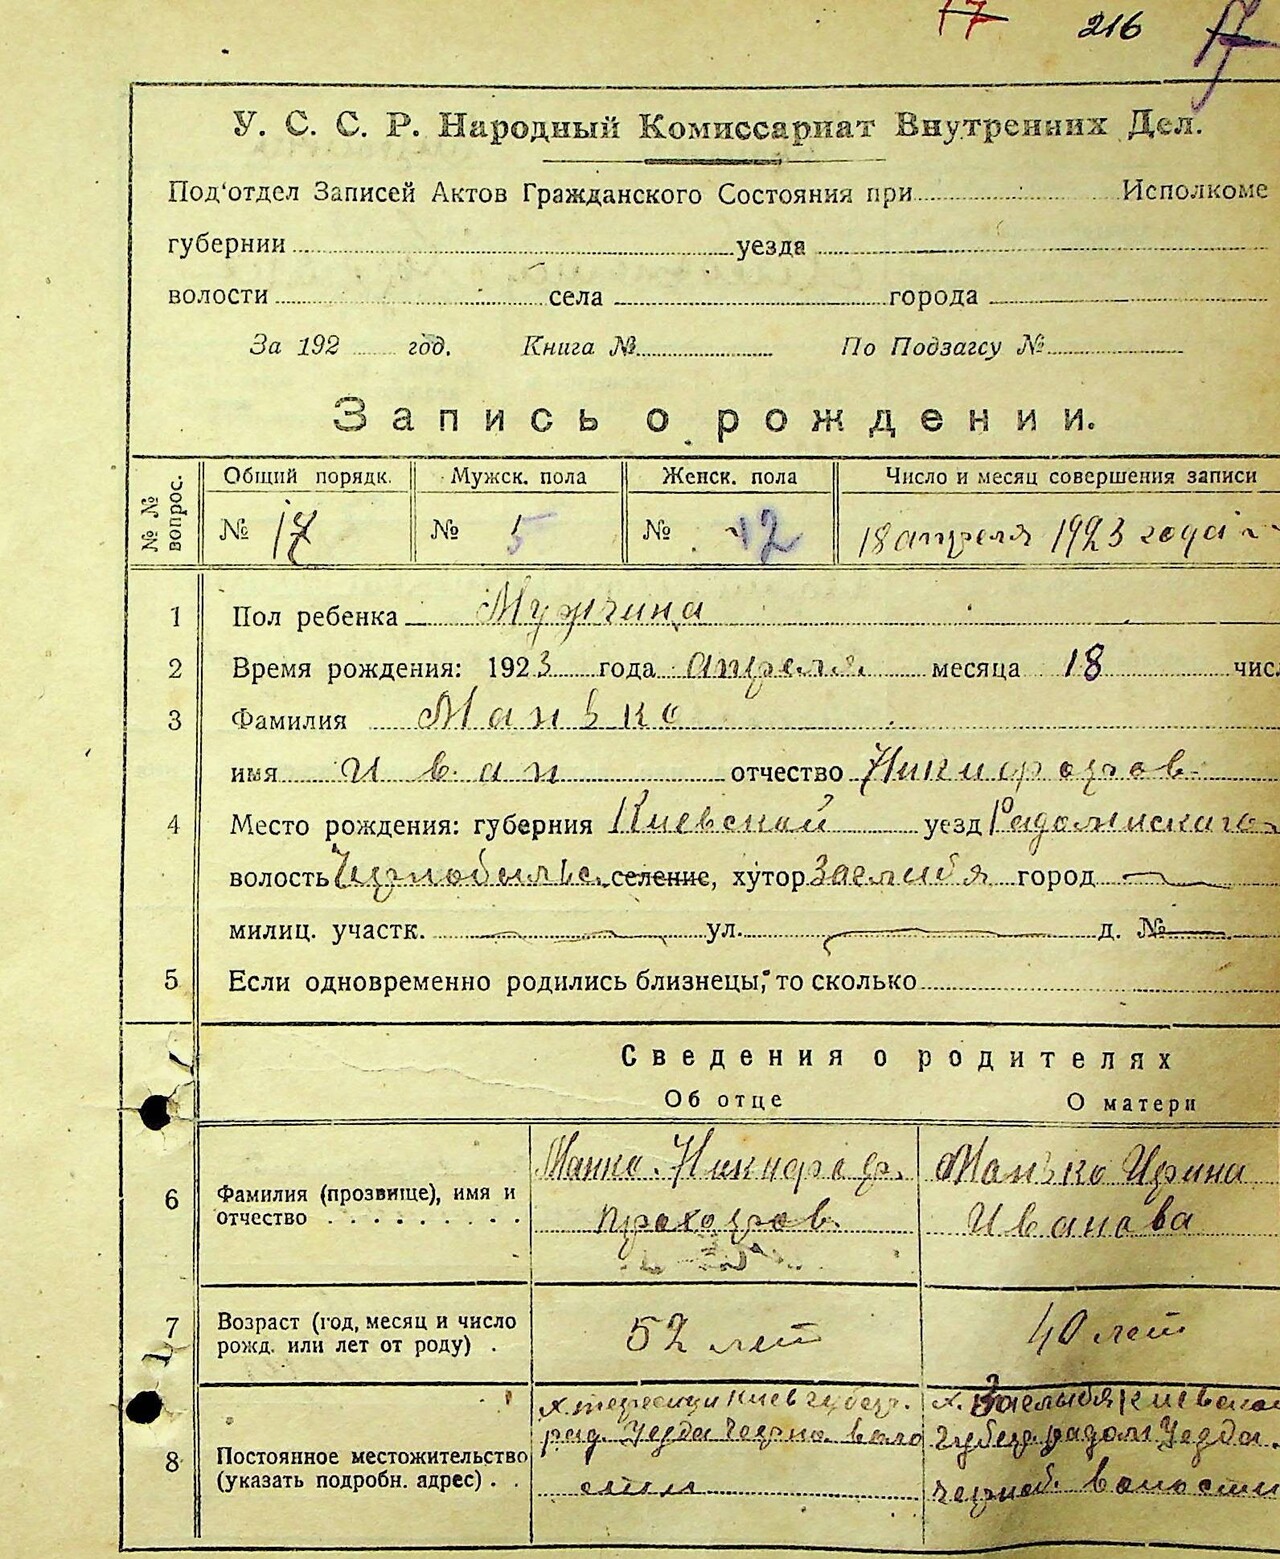 17 216 17
У. С. С. Р. Народный Комиссариат Внутренних Дел.
Под'отдел Записей Актов Гражданского Состояния при Исполкоме
губернии уезда
волости села города
За 192 год. Книга № По Подзагсу №
Запись о рождении.
№ № вопрос. Общий порядк. Мужск. пола Женск. пола Число и месяц совершения записи
№ 17 № 5 № 12 18 апреля 1923 года
1 Пол ребенка Мужчина
2 Время рождения: 1923 года апреля месяца 18 числ
3 Фамилия Манько
имя Иван отчество Никифоров
4 Место рождения: губерния Киевской уезд Радомиского
волость Чернобыльс. селение, хутор Заемибя город
милиц. участк. ул. д. №
5 Если одновременно родились близнецы, то сколько
Сведения о родителях
Об отце О матери
6 Фамилия (прозвище), имя и отчество Манко Никифор Прохоров Манько Ирина Иванова
7 Возраст (год, месяц и число рожд. или лет от роду) 52 лет 40 лет
8 Постоянное местожительство (указать подробн. адрес) Киев губер. рад. Уезда Черно. воло сти х. Заемыбя Киевской губер радом Уезда. черноб. волости